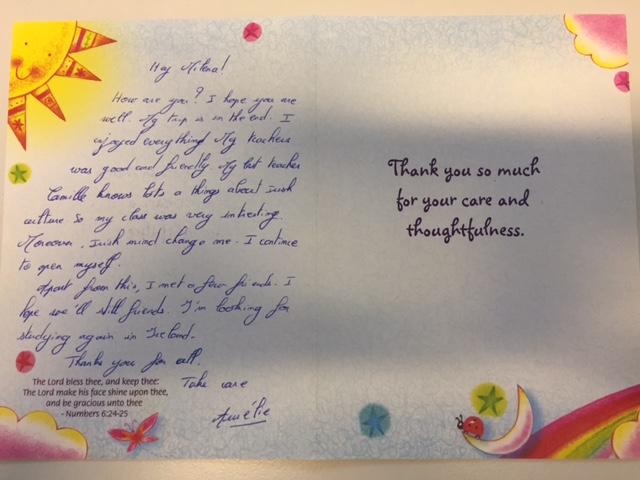 Hey Milena!
How are you? I hope you are
well. My trip is in the end. I
enjoyed everything. My teachers
was good and friendly. My last teacher
Camille knows lots a things about Irish
culture so my class was very intresting.
Moreover, Irish mind change me. I continue
to open myself.
Apart from this, I met a few friends. I
hope we'll still friends. I'm looking for
studying again in Ireland.
Thanks you for all.
Take care
Amélie
The Lord bless thee, and keep thee:
The Lord make his face shine upon thee,
and be gracious unto thee
- Numbers 6:24-25
Thank you so much
for your care and
thoughtfulness.